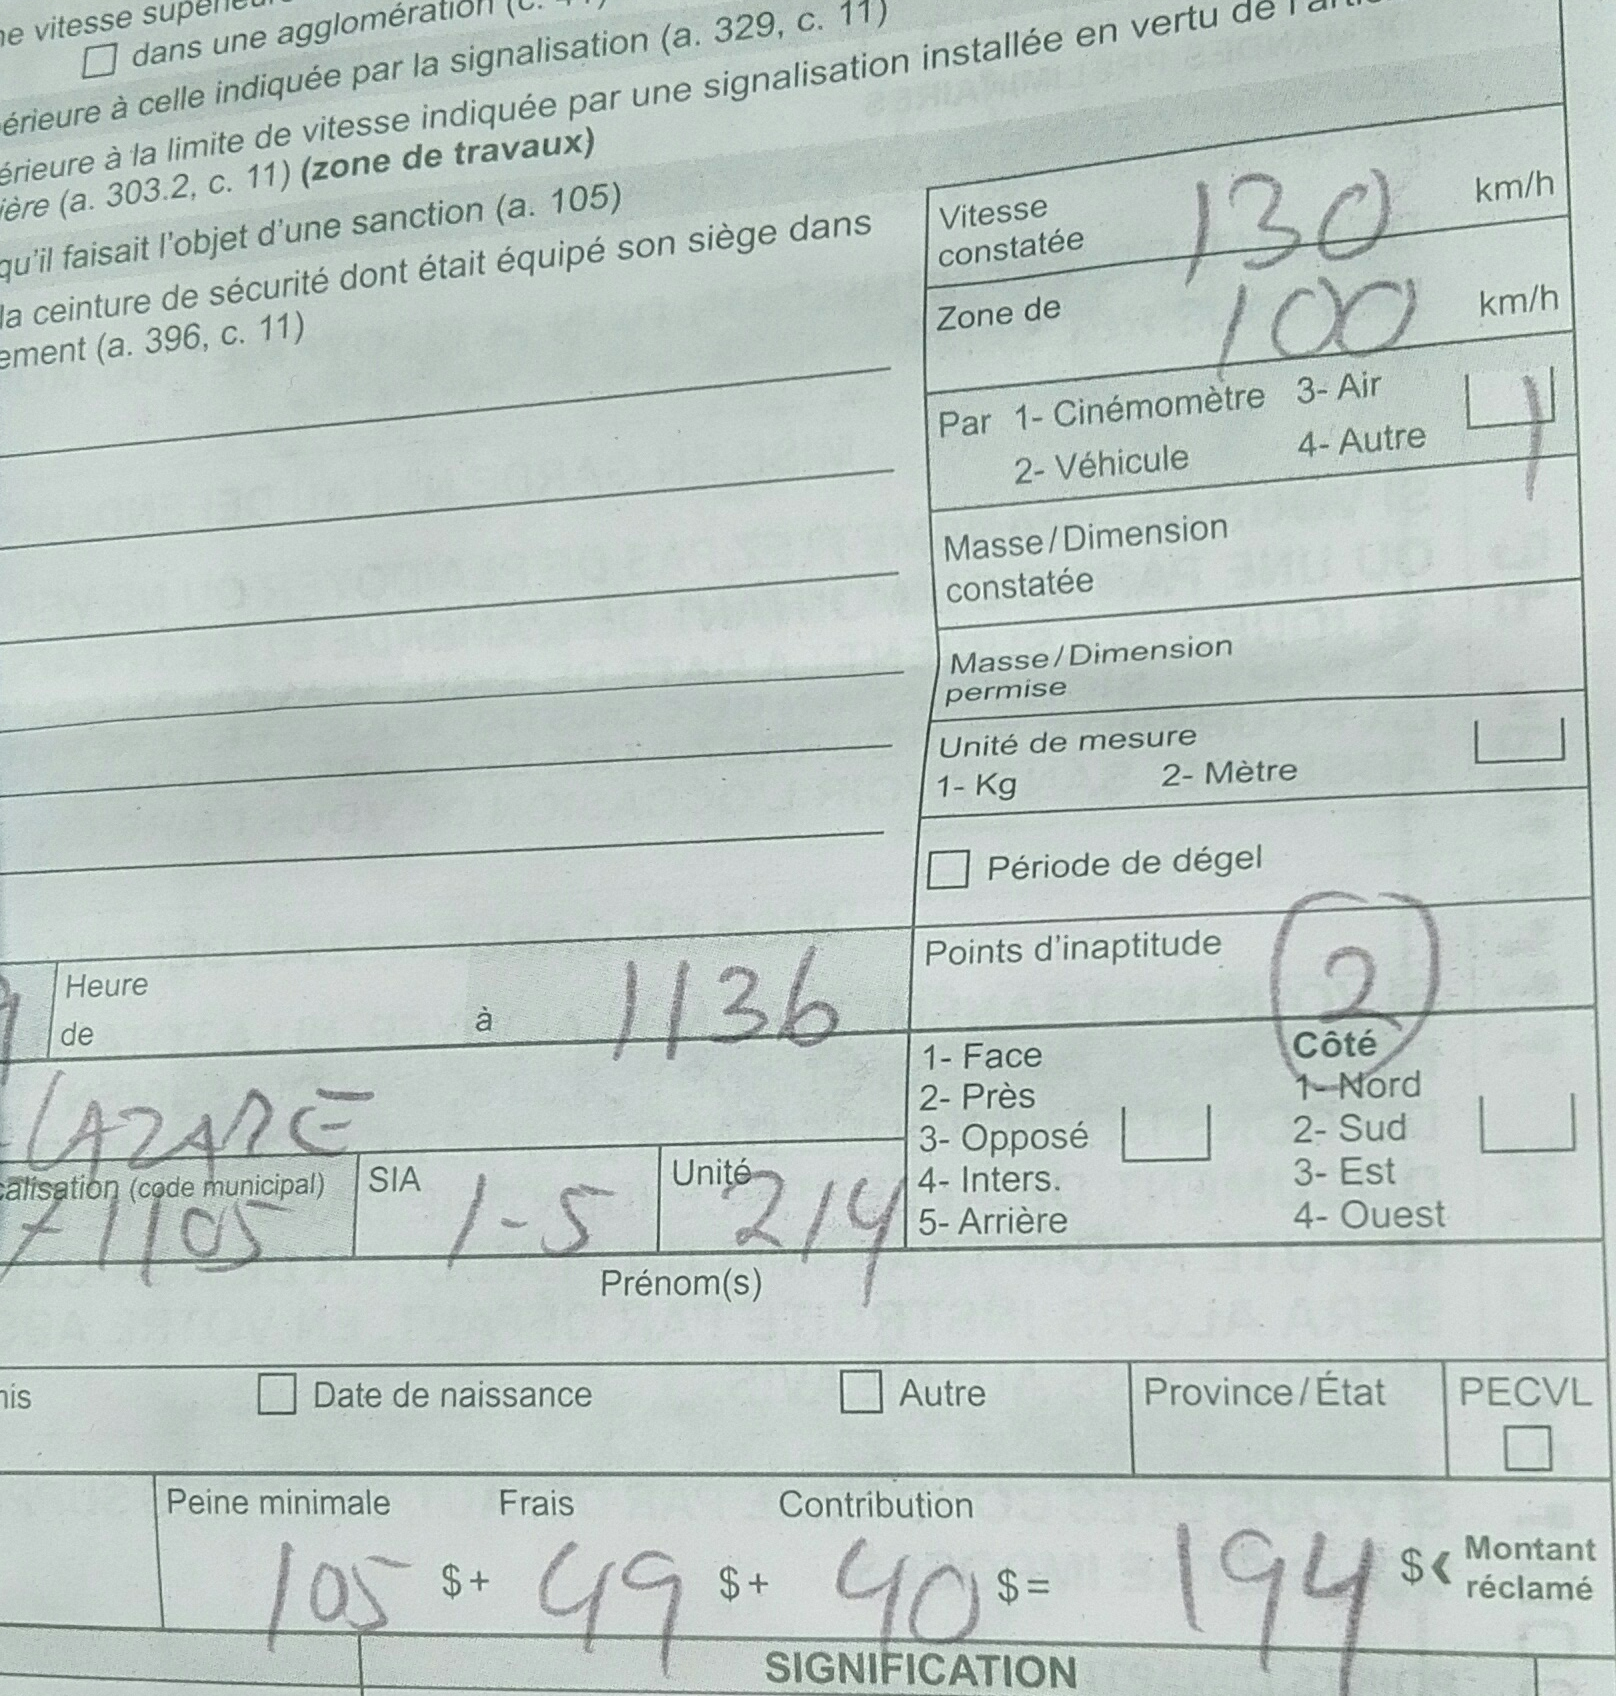 ne vitesse supérieu
dans une agglomération (c.
érieure à celle indiquée par la signalisation (a. 329, c. 11)
érieure à la limite de vitesse indiquée par une signalisation installée en vertu de l'arti
ière (a. 303.2, c. 11) (zone de travaux)
qu'il faisait l'objet d'une sanction (a. 105)
la ceinture de sécurité dont était équipé son siège dans
ement (a. 396, c. 11)
Vitesse constatée 130 km/h
Zone de 100 km/h
Par 1- Cinémomètre 3- Air 1
2- Véhicule 4- Autre
Masse/Dimension
constatée
Masse/Dimension
permise
Unité de mesure
1- Kg 2- Mètre
Période de dégel
Points d'inaptitude 2
Heure
de à 1136
LAZARE
1- Face Côté
2- Près 1- Nord
3- Opposé 2- Sud
4- Inters. 3- Est
5- Arrière 4- Ouest
calisation (code municipal) SIA Unité
71105 1-5 214
Prénom(s)
nis Date de naissance Autre Province/État PECVL
Peine minimale Frais Contribution
105 $+ 49 $+ 40 $= 194 $ Montant
réclamé
SIGNIFICATION